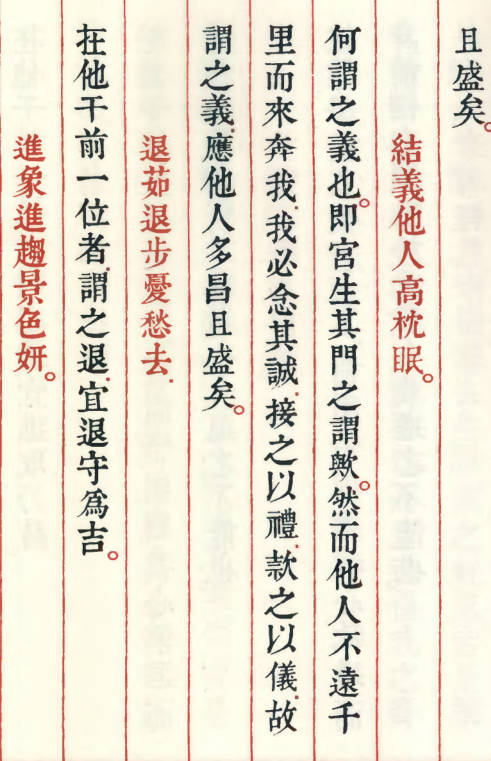 且盛矣。
結義他人高枕眠。
何謂之義也。即宮生其門之謂歟。然而他人不遠千
里而來奔我.我必念其誠.接之以禮.款之以儀.故
謂之義.應他人多昌且盛矣。
退茹退步憂愁去.
在他干前一位者.謂之退.宜退守為吉。
進象進趨景色妍。